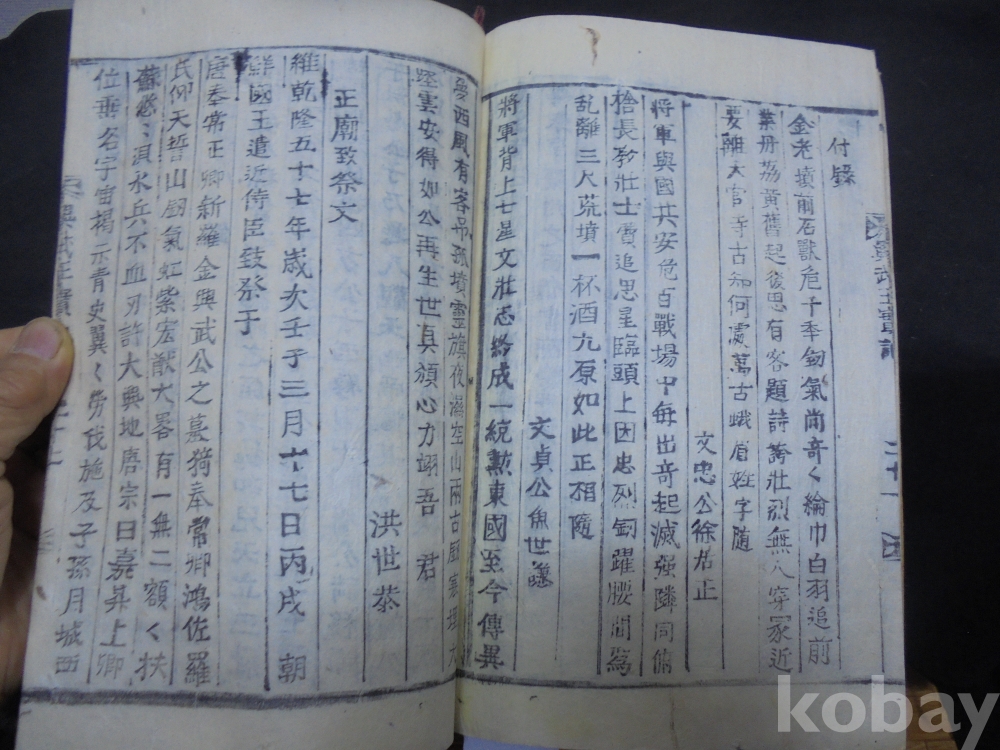 付錄
金老墳前石獸危千季劒氣尙奇〻綸巾白羽追前
業丹荔黃蕉起後思有客題詩誇壯烈無人穿冢近
要離大官寺古知何處萬古蛾眉姓字随
文忠公徐居正
將軍與國共安危百戰場中每出奇起滅强隣同俯
拾長敎壯士實追思星臨頭上因忠烈劒躍腰間爲
乱離三尺荒墳一杯酒九原如此正相隨
文貞公魚世謙
將軍背上七星文壯志終成一統勲東國至今傳異
夢西風有客吊孤墳靈旗夜濕空山雨古
雲安得如公再生世真頒心力翊吾 君
洪世恭
正廟致祭文
維乾隆五十七年歲次壬子三月十七日丙戌 朝
鮮國王遣近侍臣致祭于
唐奉常正卿新羅金興武公之墓猗奉常卿鴻佐羅
氏仰天誓山劒氣虹紫宏猷大畧有一無二額〻扶
蘇悠〻浿水兵不血刃許大輿地唐宗曰嘉昇上卿
位垂名宇宙揭示青史翼〻勞伐施及子孫月城西
二十一
kobay